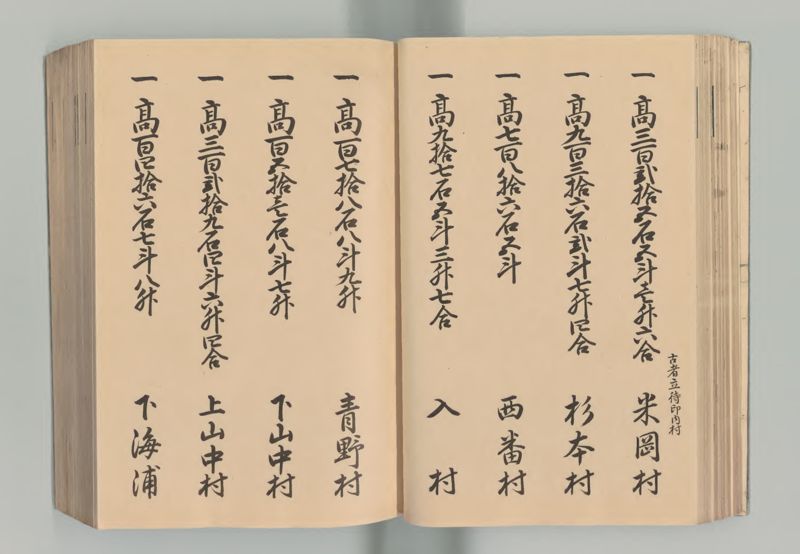 古者立待印内村
一 高三百弐拾五石五斗壱升六合 米岡村
一 高九百三拾六石弐斗七升四合 杉本村
一 高七百八拾六石五斗 西番村
一 高九拾七石五斗三升七合 入村
一 高百七拾八石八斗九升 青野村
一 高百五拾壱石八斗七升 下山中村
一 高三百弐拾九石四斗六升四合 上山中村
一 高百四拾六石七斗八升 下海浦